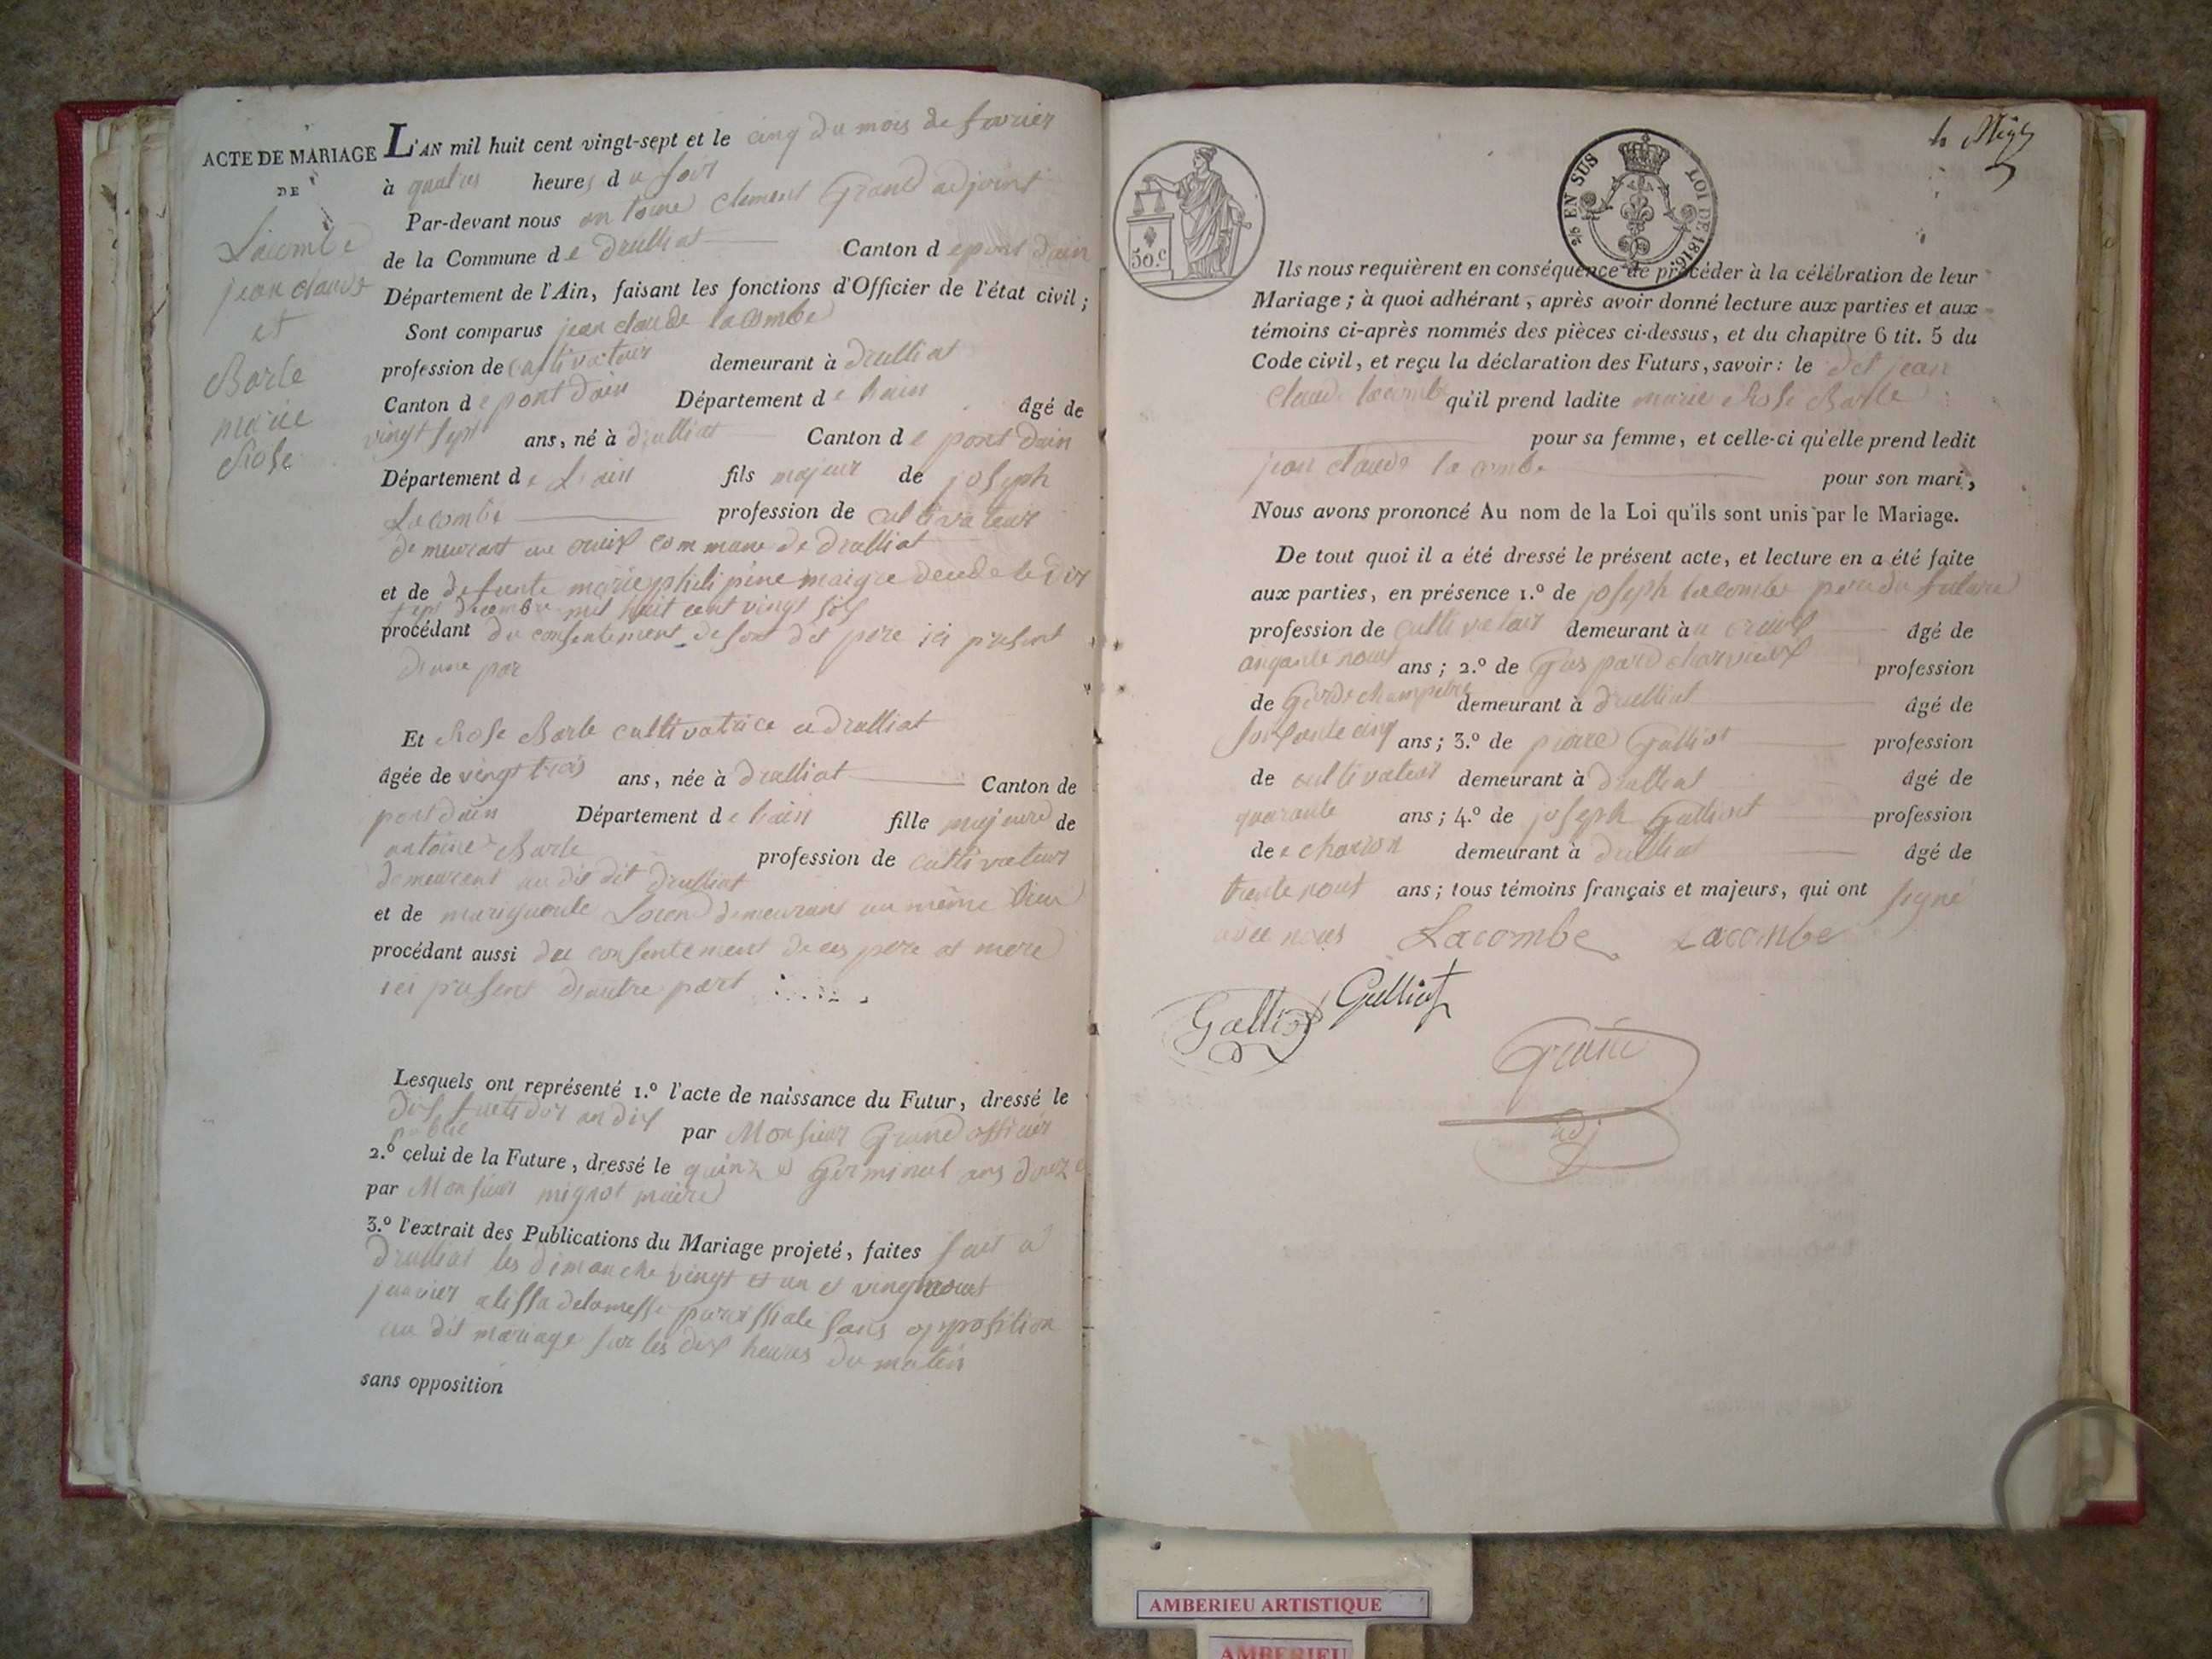 ACTE DE MARIAGE
DE
Lacombe
jean claude
et
Borle
marie
Rose
L'AN mil huit cent vingt-sept et le cinq du mois de fevrier
à quatres heures du soir
Par-devant nous antoine clement Grand adjoint
de la Commune de Drulliat Canton de pont dain
Département de l'Ain, faisant les fonctions d'Officier de l'état civil ;
Sont comparus jean claude lacombe
profession de cultivateur demeurant à Drulliat
Canton de pont dain Département de lain âgé de
vingt sept ans, né à drulliat Canton de pont dain
Département de L'ain fils majeur de joseph
Lacombe profession de cultivateur
demeurant au commune de Drulliat
et de defunte marie philipine maigre decede le dix
sept decembre mil huit cent vingt six
procédant du consentement de son dit pere ici present
d'une par
Et Rose Borle cultivatrice a drulliat
âgée de vingt trois ans, née à Drulliat Canton de
pont dain Département de lain fille majeure de
antoine Borle profession de cultivateur
demeurant au dit Drulliat
et de demeurant au même lieu
procédant aussi du consentement de ces pere et mere
ici present d'autre part
Lesquels ont représenté 1.º l'acte de naissance du Futur, dressé le
dix an dix
public par Monsieur Grand officier
2.º celui de la Future, dressé le quinze Germinal ans douze
par Monsieur mignot maire
3.º l'extrait des Publications du Mariage projeté, faites fait a
Drulliat les dimanche vingt et un et vingt
janvier a lissa de la messe paroissiale sans opposition
au dit mariage sur les dix heures du matin
sans opposition
50.c
2/5 EN SUS LOI DE 1816
Ils nous requièrent en conséquence de procéder à la célébration de leur
Mariage ; à quoi adhérant, après avoir donné lecture aux parties et aux
témoins ci-après nommés des pièces ci-dessus, et du chapitre 6 tit. 5 du
Code civil, et reçu la déclaration des Futurs, savoir : le dit jean
Claude lacombe qu'il prend ladite marie Rose Borle
pour sa femme, et celle-ci qu'elle prend ledit
jean claude lacombe pour son mari,
Nous avons prononcé Au nom de la Loi qu'ils sont unis par le Mariage.
De tout quoi il a été dressé le présent acte, et lecture en a été faite
aux parties, en présence 1.º de joseph lacombe pere du future
profession de cultivateur demeurant à âgé de
ans ; 2.º de Gaspard profession
de Garde champetre demeurant à drulliat âgé de
soisante cinq ans ; 3.º de piere Galliot profession
de cultivateur demeurant à Drulliat âgé de
quarante ans ; 4.º de joseph Galliot profession
de charon demeurant à Drulliat âgé de
trente ans ; tous témoins français et majeurs, qui ont signé
avec nous Lacombe Lacombe
Galliot Galliot
Grand
adj
AMBERIEU ARTISTIQUE
AMBERIEU